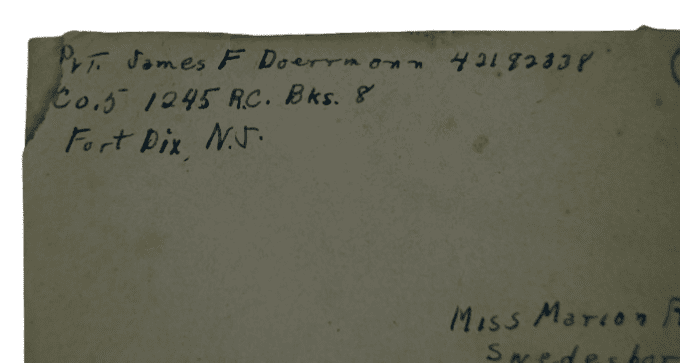 Pvt. James F Doerrmann 42182338
Co.5 1245 R.C. Bks. 8
Fort Dix, N.J.
Miss Marion